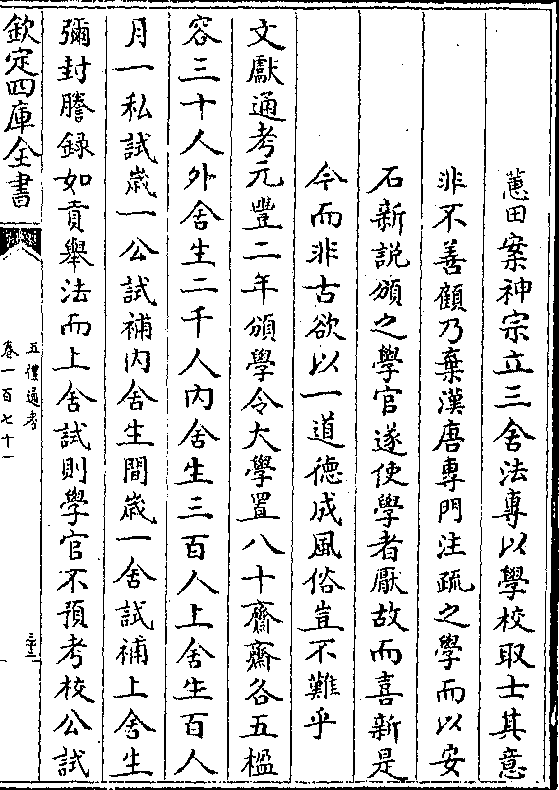 蕙田案神宗立三舍法專以學校取士其意
非不善顧乃棄漢唐專門注疏之學而以安
石新説頒之學官遂使學者厭故而喜新是
今而非古欲以一道德成風俗豈不難乎
文獻通考元豐二年頒學令大學置八十齋齋各五楹
容三十人外舍生二千人内舍生三百人上舍生百人
月一私試歳一公試補内舍生間歳一舍試補上舍生
彌封謄録如貢舉法而上舍試則學官不預考校公試
欽定四庫全書
五禮通考
卷一百七十一
三十三